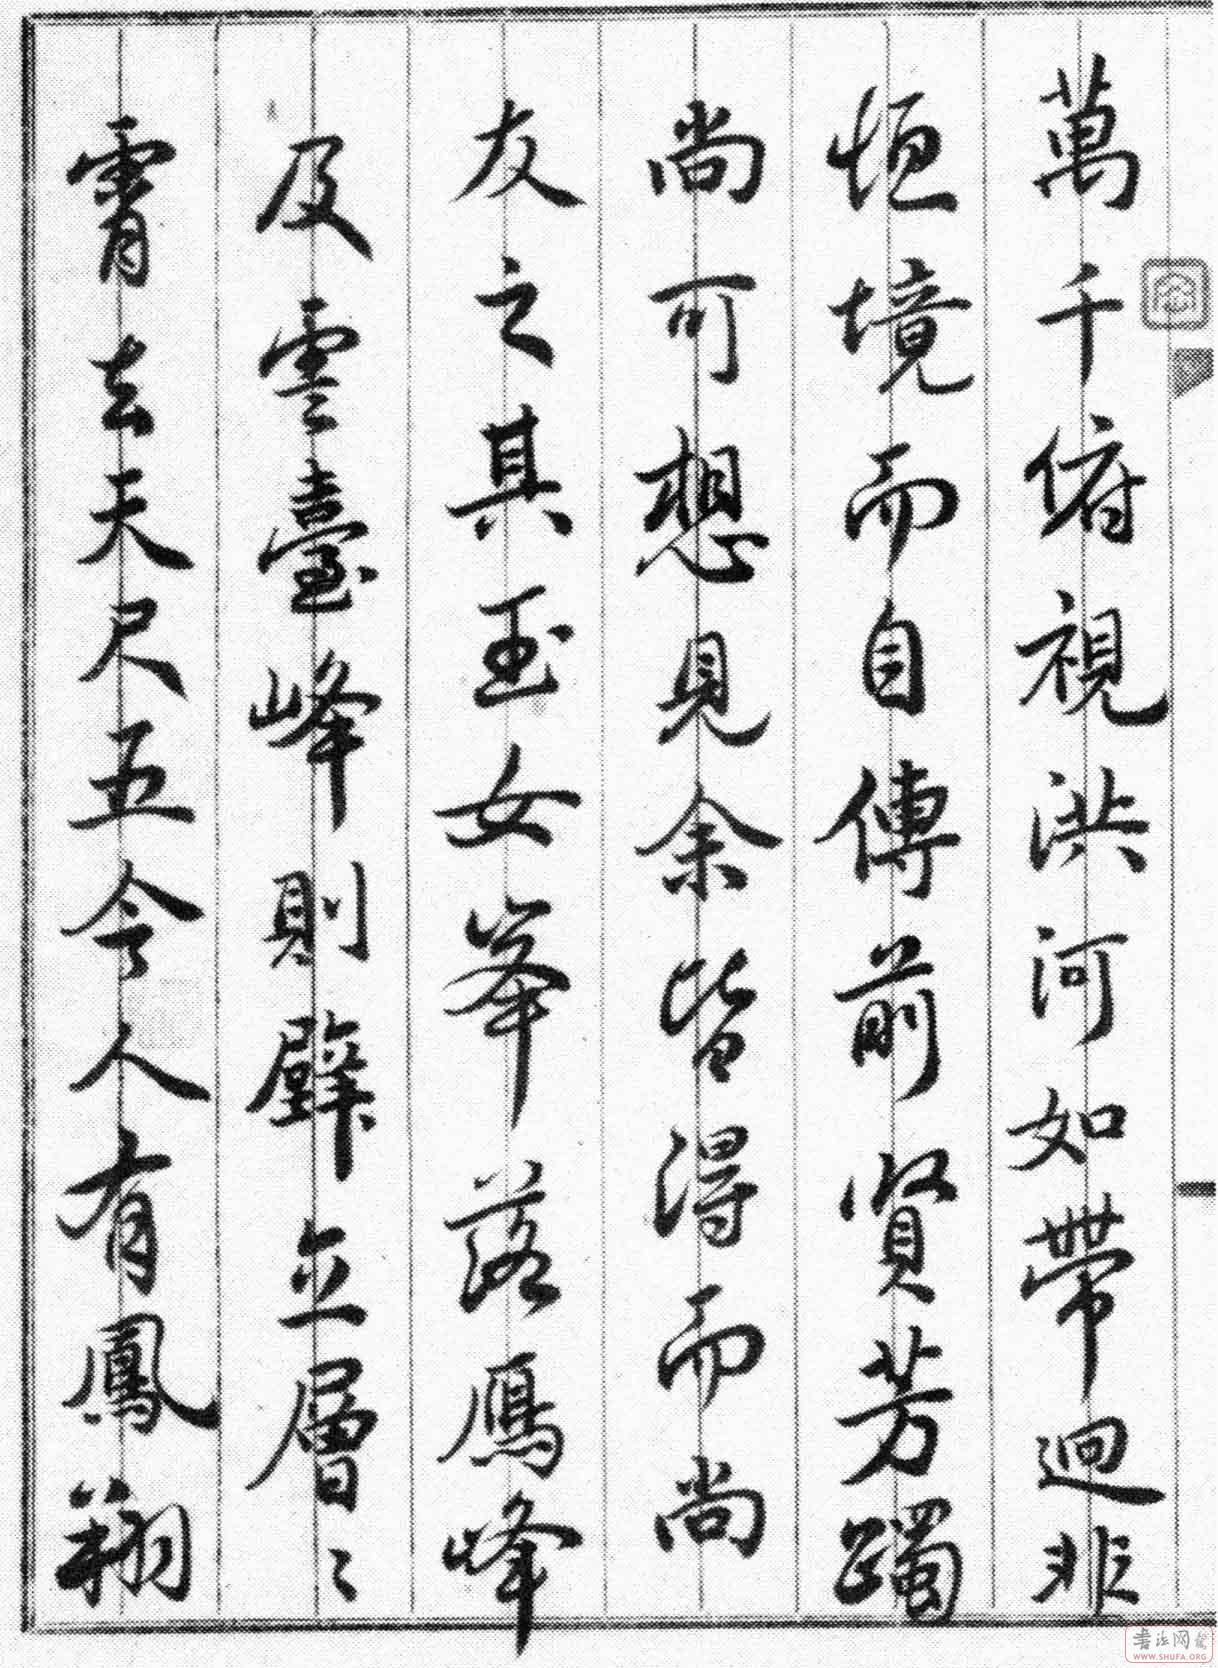 萬千俯視洪河如帶迥非
恒境而自傳前賢芳躅
尚可想見余皆得而尚
友之其玉女峯落鴈峰
及雲臺峰則壁立層〻
霄去天尺五令人有鳳翔
書法网
WWW.SHUFA.ORG